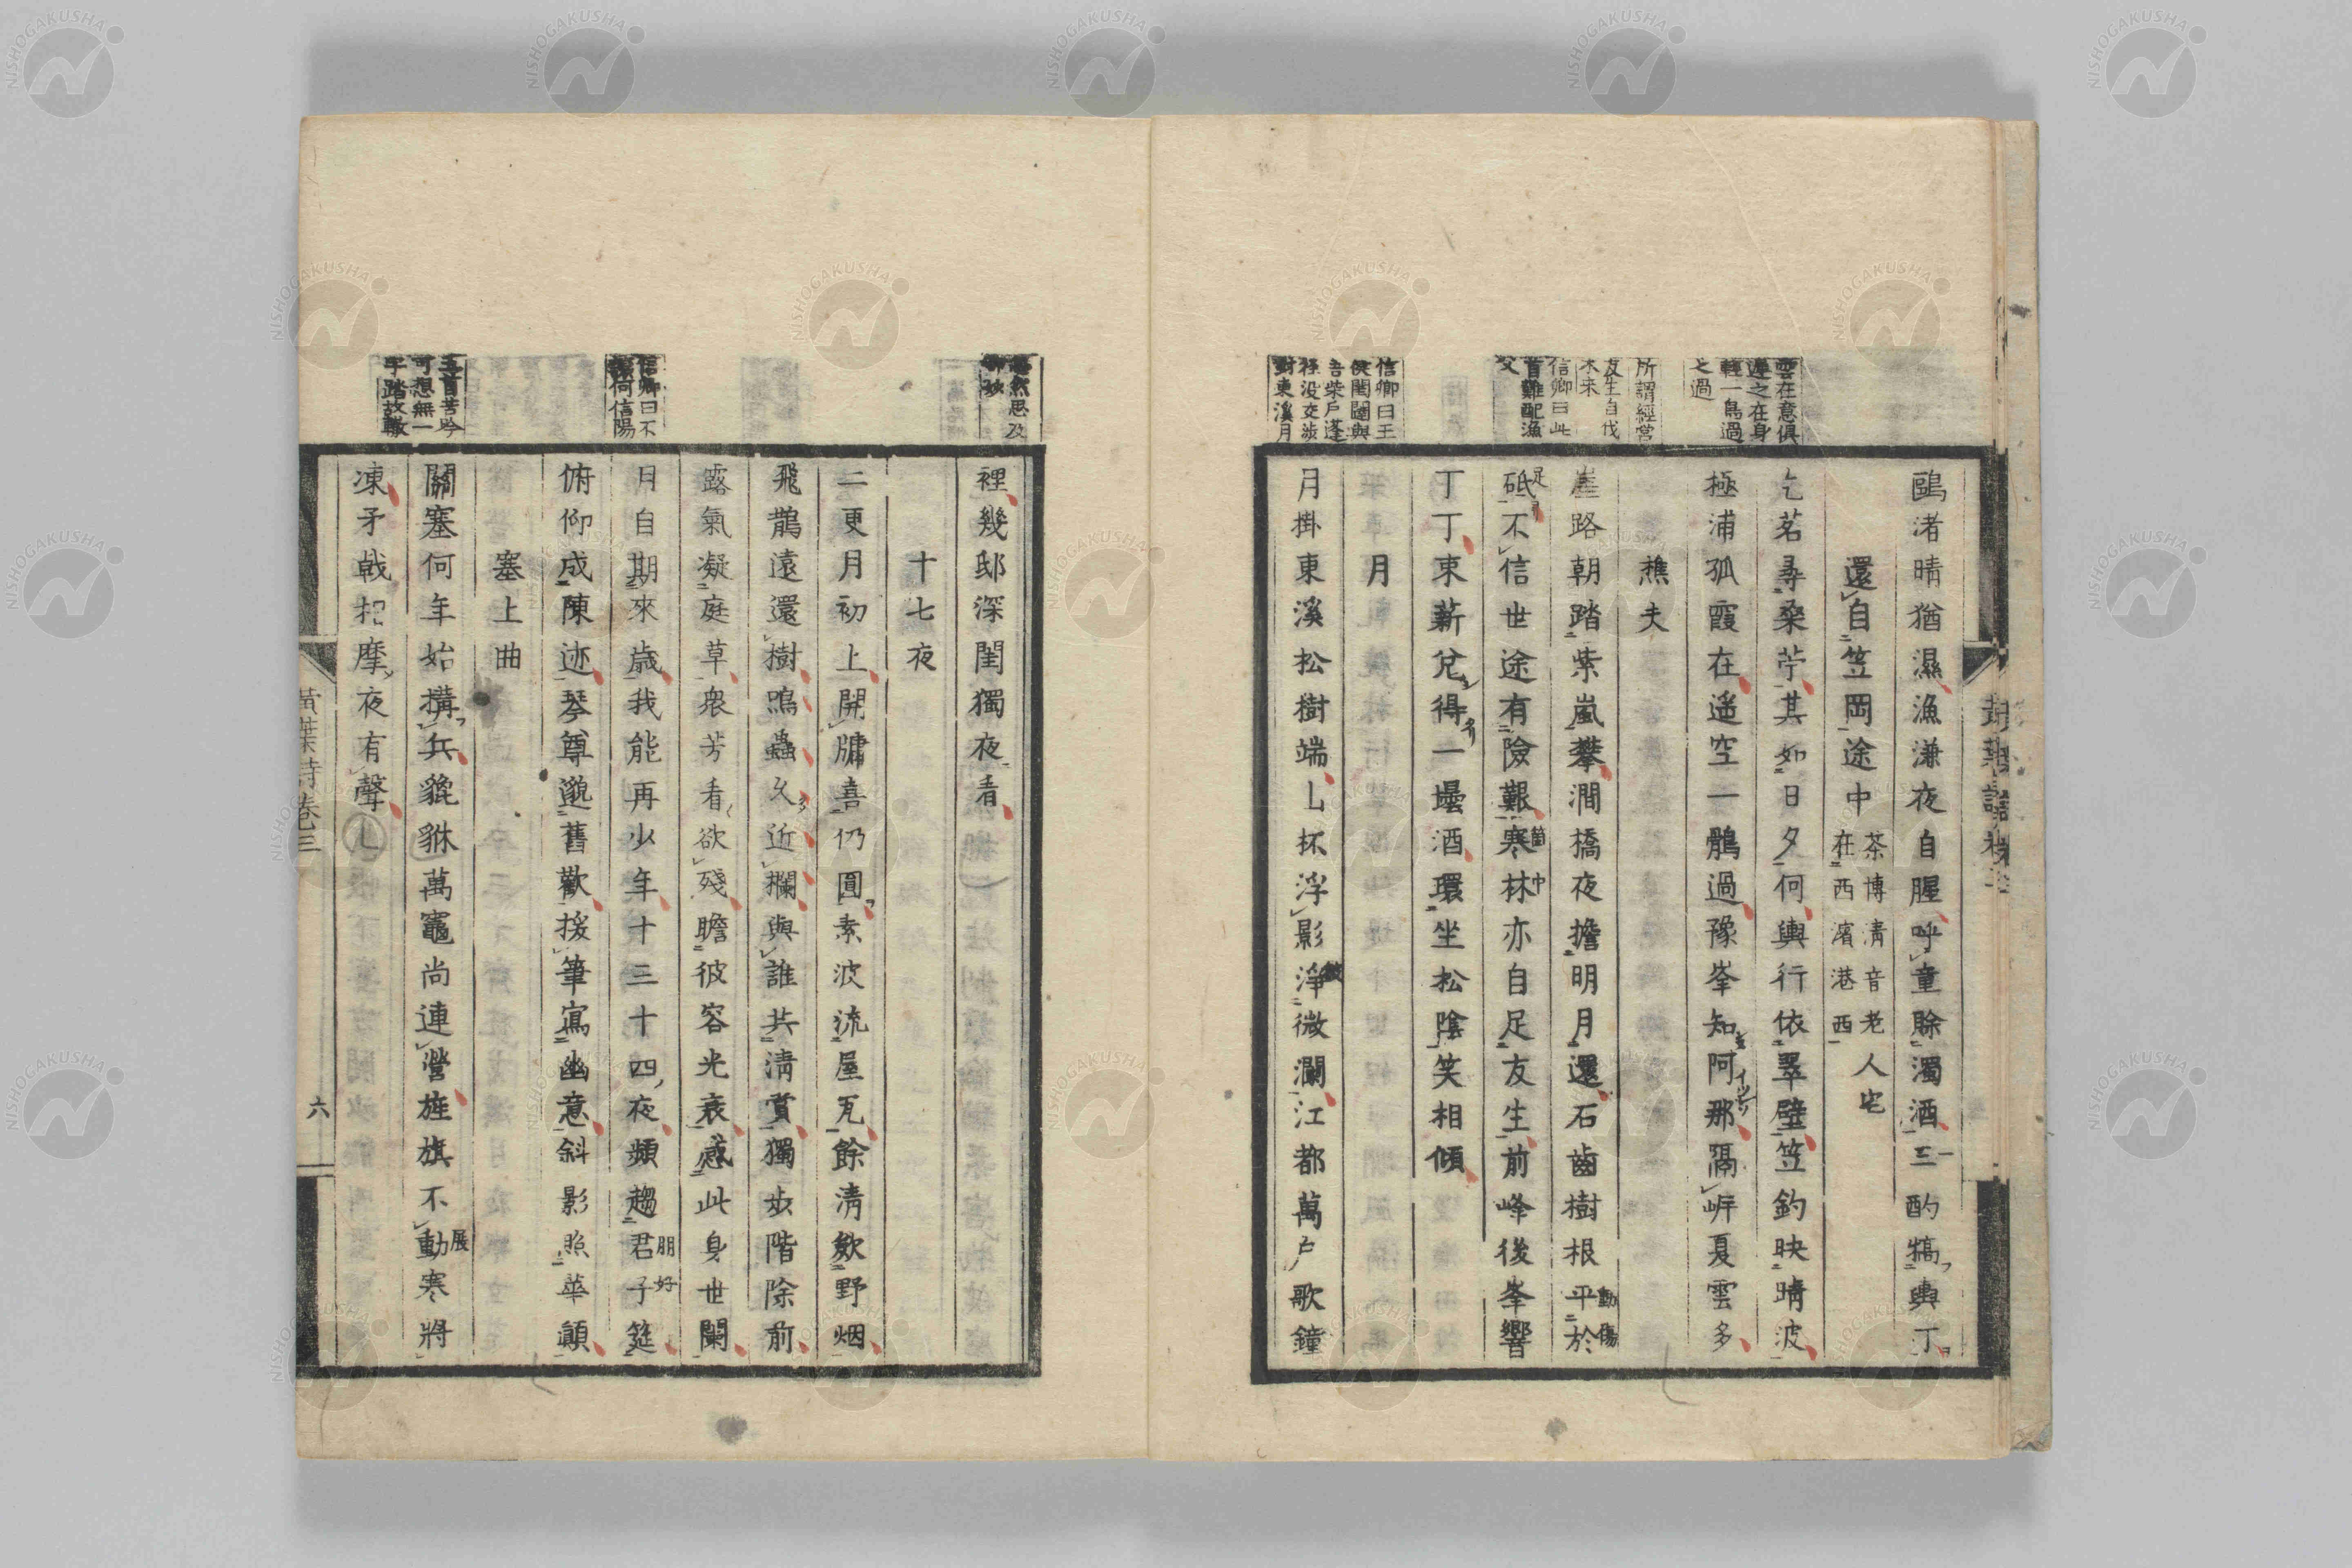 雲在意俱
遲之在身
輕一鳥過
之過
所謂經營
友生自伐
木来
信卿曰此
首難配漁
父
信卿曰王
侯閨闥與
吾柴戶蓬
徑没交渉
對東溪月
鷗渚晴猶濕漁溓夜自腥呼童賒濁酒三酌犒輿丁
還自笠岡途中 茶博淸音老人宅在西濱港西
乞茗尋桑苧其如日夕何輿行依翠壁笠釣映晴波
極浦孤霞在遙空一鶻過豫峯知阿那隔岸夏雲多
樵夫
崖路朝踏紫嵐攀澗橋夜擔明月還石齒樹根平於
動傷
砥不信世途有險艱寒林亦自足友生前峰後峯響
丁丁束薪兌得一壜酒環坐松陰笑相傾
月
月掛東溪松樹端山杯浮影淨微瀾江都萬戶歌鐘
裡幾邸深閨獨夜看
十七夜
二更月初上開牗喜仍圓素波流屋瓦餘淸歛野烟
飛鵲遠還樹鳴蟲久近攔與誰共淸賞獨步階除前
露氣凝庭草衆芳看欲殘瞻彼容光衰感此身世闌
月自期來歲我能再少年十三十四夜頻趨君子筵
朋好
俯仰成陳迹琴尊邈舊歡援筆寫幽意斜影照華顚
塞上曲
關塞何年始搆兵貔貅萬竈尚連營旌旗不動寒將
展
凍矛戟相摩夜有聲
信卿曰不
讓何信陽
五首苦吟
可想無一
字踏故轍
黃葉詩卷三
六
NISHOGAKUSHA